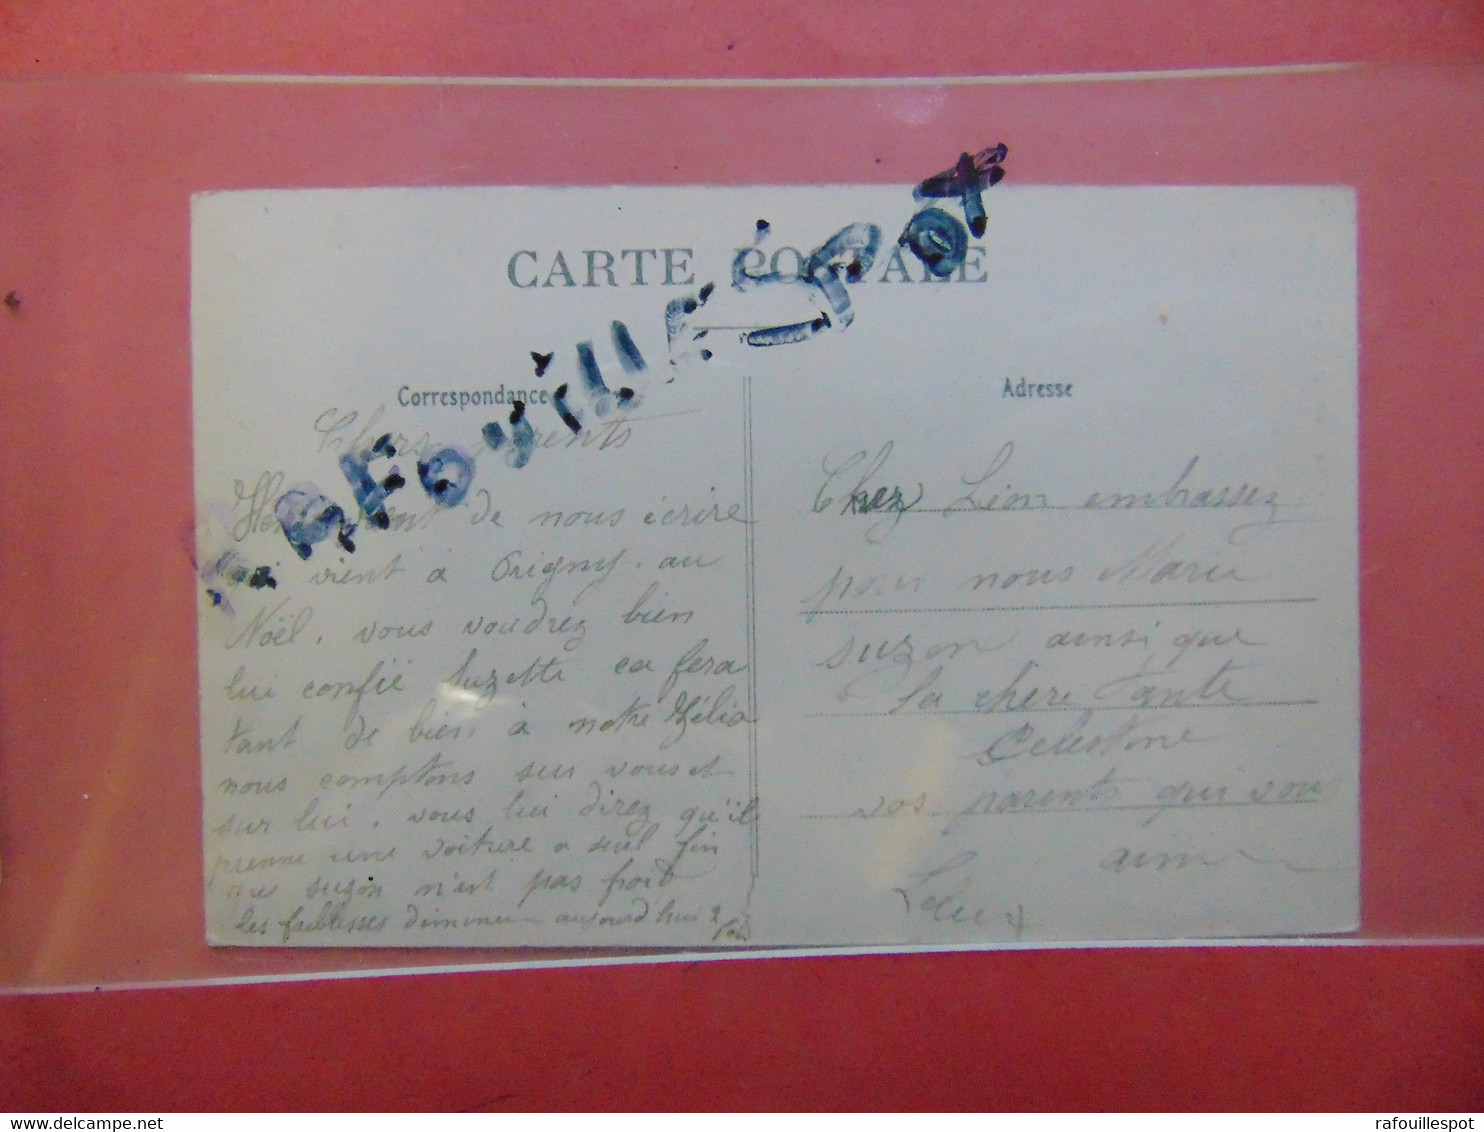 CARTE POSTALE
RAFOUILLE-SPOT
Correspondance
Chers parents
vient de nous écrire
vient a Origny. au
Noël. vous voudrez bien
lui confié Suzette ca fera
tant de bien à notre Zélia
nous comptons sur vous et
sur lui. vous lui direz qu'il
prenne une voiture a seul fin
que suzon n'est pas froid
les faiblesses diminue aujourd'hui 2
Adresse
Chez Léon embrassez
pour nous Marie
suzon ainsi que
la chère tante
Celestine
vos parents qui vous
aime
rafouillespot
www.delcampe.net